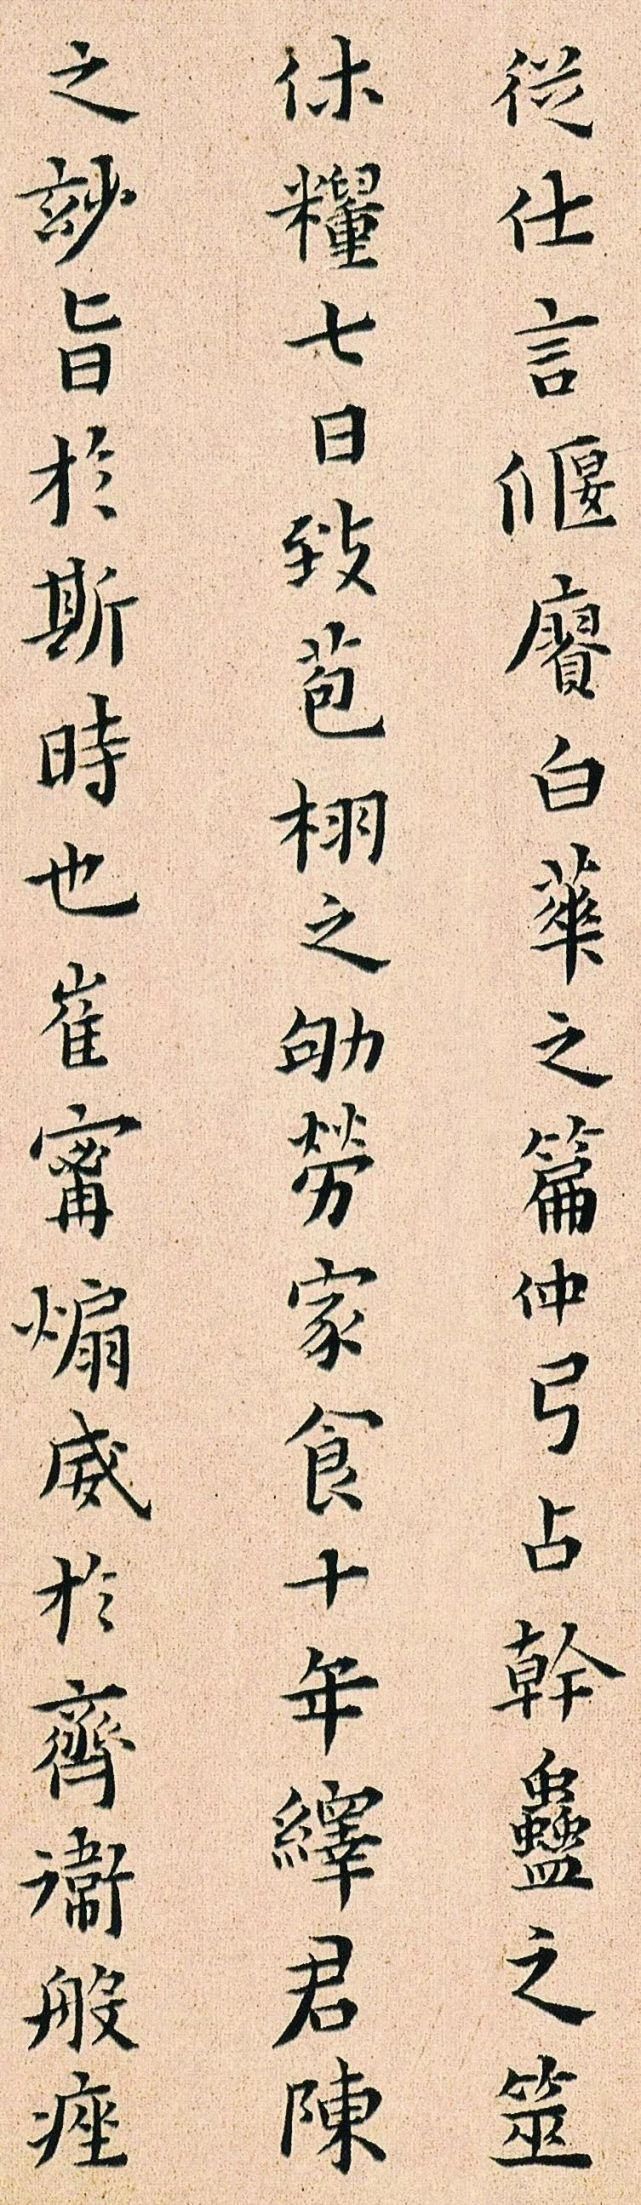 從仕言偃賡白華之篇仲弓占幹蠱之筮
休糧七日致苞栩之劬勞家食十年繹君陳
之玅旨於斯時也崔甯煽威於齊衛般痤